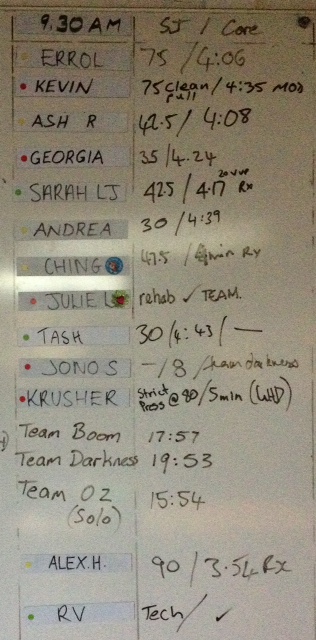 9.30 AM SJ / Core
ERROL 75 / 4:06
KEVIN 75 clean pull / 4:35 MOD
ASH R 42.5 / 4:08
GEORGIA 35 / 4.24
SARAH LJ 42.5 / 4.17 Rx
ANDREA 30 / 4:39
CHING 47.5 / 4min Rx
JULIE L rehab ✓ TEAM.
TASH 30 / 4:43 / —
JONO S - / 8 / team darkness
KRUSHER Strict Press @ 80 / 5min (WHD)
Team Boom 17:57
Team Darkness 19:53
Team OZ 15:54
(Solo)
ALEX.H. 90 / 3.54 Rx
RV Tech / ✓